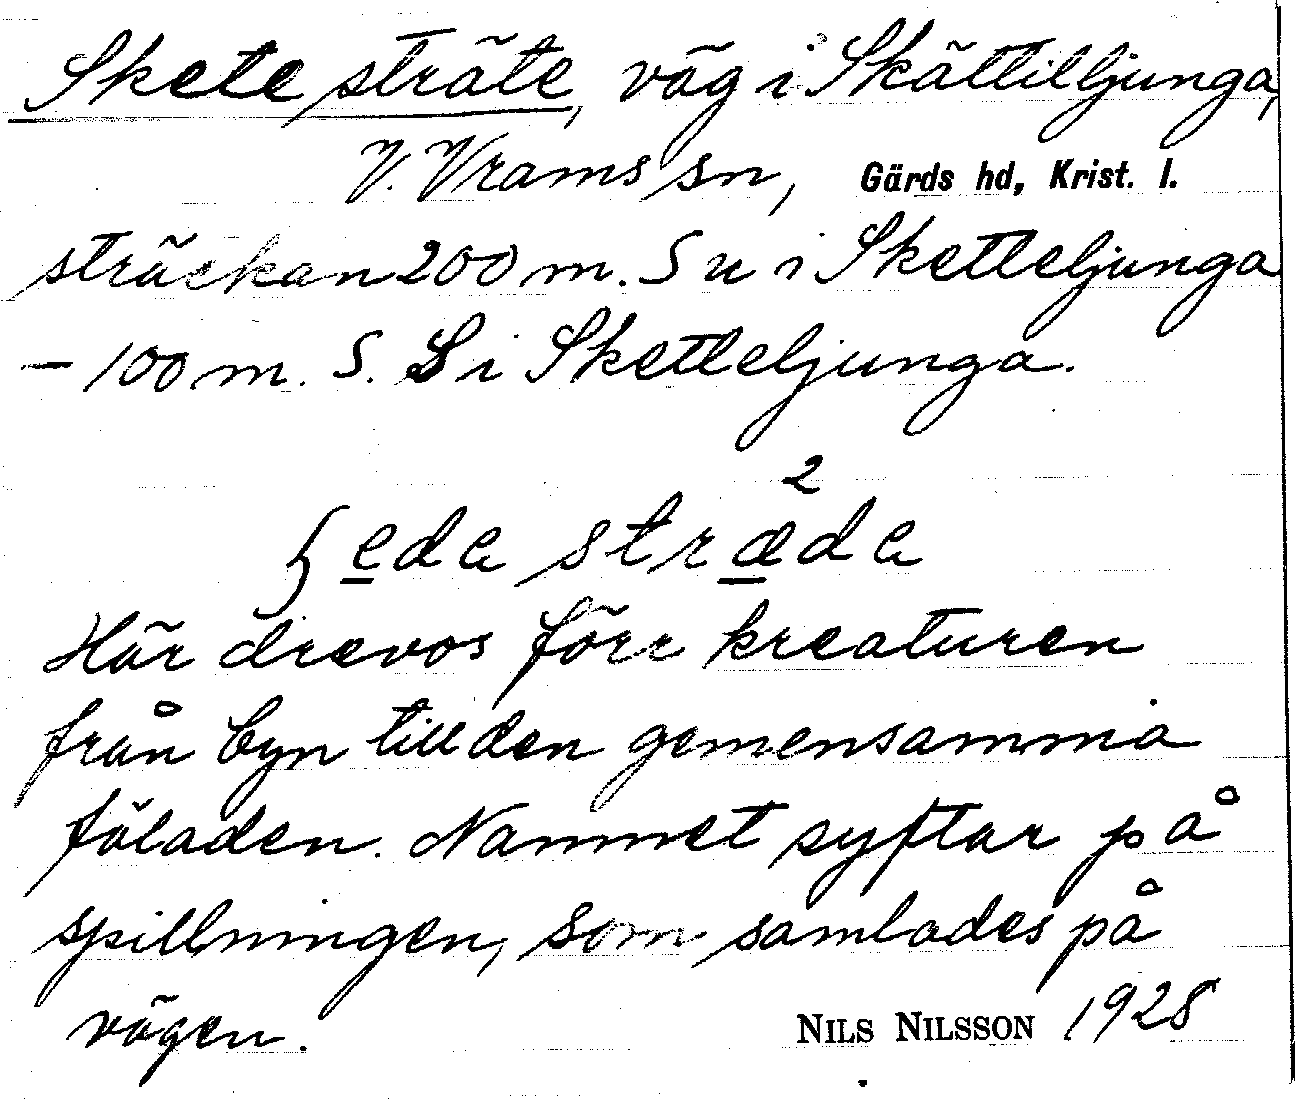 Skete sträte, väg i Skättilljunga,
V. Vrams sn, Gärds hd, Krist. l.
sträckan 200 m. S u i Sketteljunga
– 100 m. S. S i Sketteljunga.
2
ʃeda sträda
Här drevos förr kreaturen
från byn till den gemensamma
fäladen. Namnet syftar på
spillningen, som samlades på
vägen. NILS NILSSON 1928